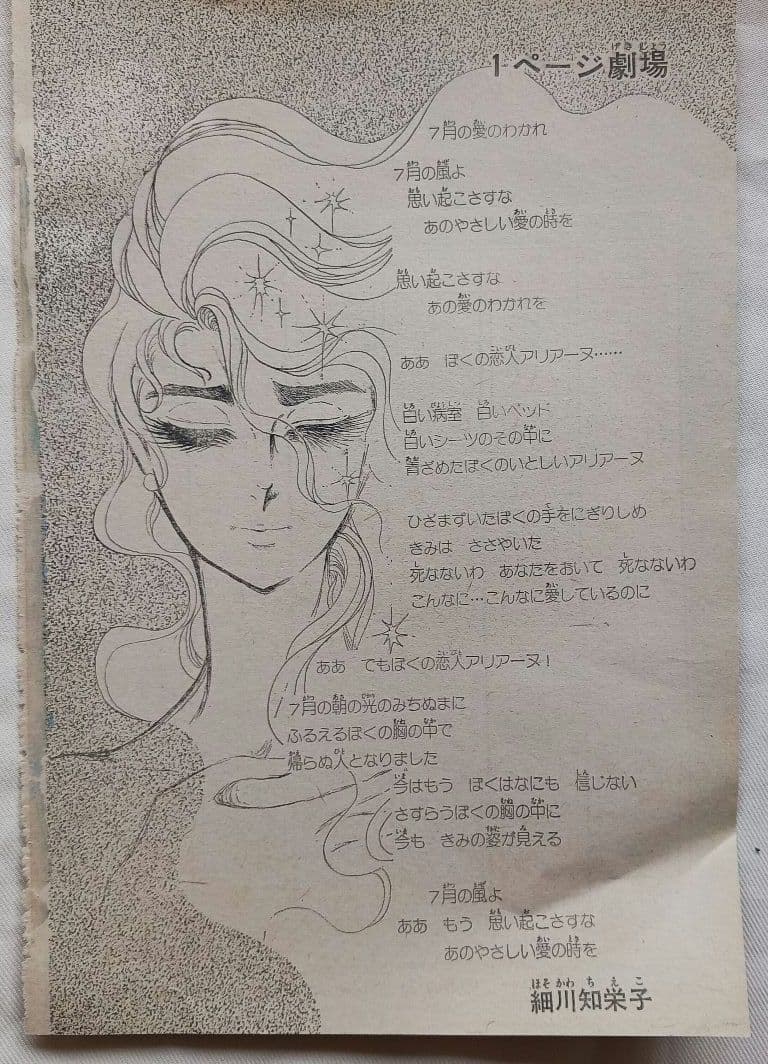 1ページ劇場
7月の愛のわかれ
7月の嵐よ
思い起こさすな
あのやさしい愛の時を
思い起こさすな
あの愛のわかれを
ああ ぼくの恋人アリアーヌ……
白い病室 白いベッド
白いシーツのその中に
青ざめたぼくのいとしいアリアーヌ
ひざまずいたぼくの手をにぎりしめ
きみは ささやいた
死なないわ あなたをおいて 死なないわ
こんなに…こんなに愛しているのに
ああ でもぼくの恋人アリアーヌ!
7月の朝の光のみちぬまに
ふるえるぼくの胸の中で
帰らぬ人となりました
今はもう ぼくはなにも 信じない
さすらうぼくの胸の中に
今も きみの姿が見える
7月の嵐よ
ああ もう 思い起こさすな
あのやさしい愛の時を
細川知栄子